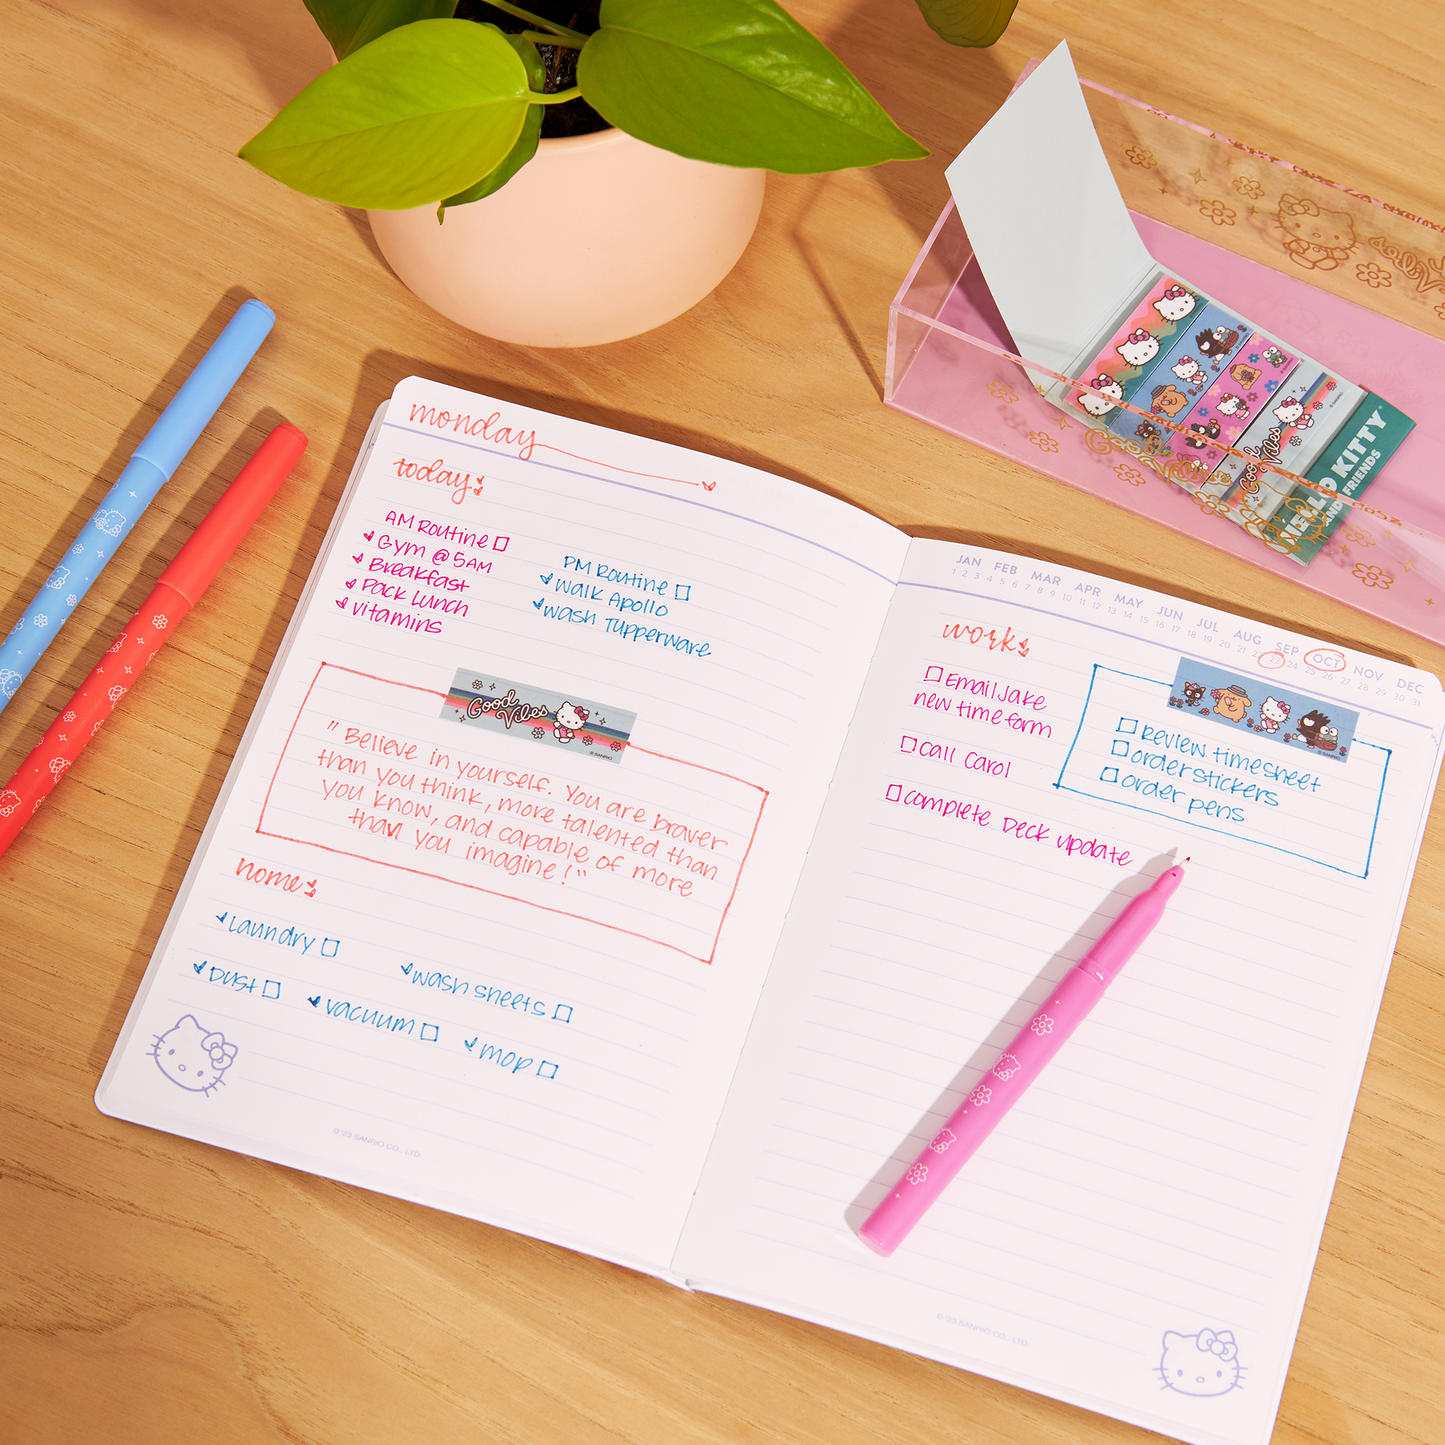 monday
today
AM Routine
Gym @ 5AM
Breakfast
Pack Lunch
vitamins
PM Routine
walk Apollo
wash Tupperware
Good
Vibes
© SANRIO
"Believe in yourself. You are braver
than you think, more talented than
you know, and capable of more
than you imagine!"
home
Laundry
wash sheets
Dust
vacuum
mop
© '23 SANRIO CO., LTD.
JAN FEB MAR APR MAY JUN JUL AUG SEP OCT NOV DEC
1 2 3 4 5 6 7 8 9 10 11 12 13 14 15 16 17 18 19 20 21 22 23 24 25 26 27 28 29 30 31
work
Email Jake
new time form
call Carol
complete Deck update
Review timesheet
order stickers
order pens
© '23 SANRIO CO., LTD.
Good
Vibes
HELLO KITTY
AND FRIENDS